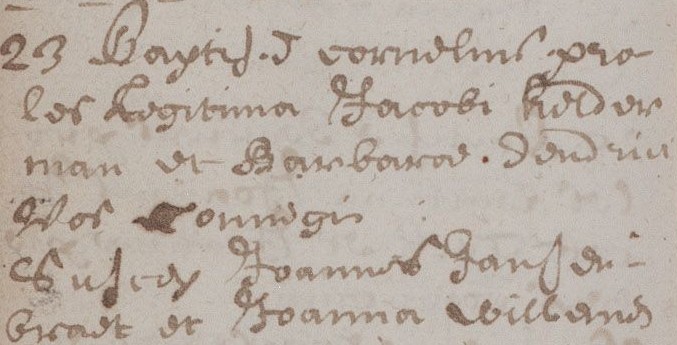 23 Baptis.d cornelius pro
les Legitima Jacobi kelder
man et Barbarae
Vos Coniugu
Suscep Joannes Jansen
braet et Joanna willems